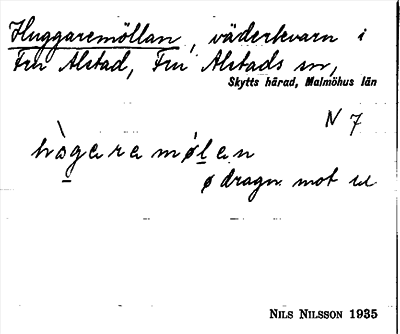 Huggaremöllan, väderkvarn i
Fru Alstad, Fru Alstads sn,
Skytts härad, Malmöhus län
N 7
hògaramǿlan
ø dragn. mot
NILS NILSSON 1935